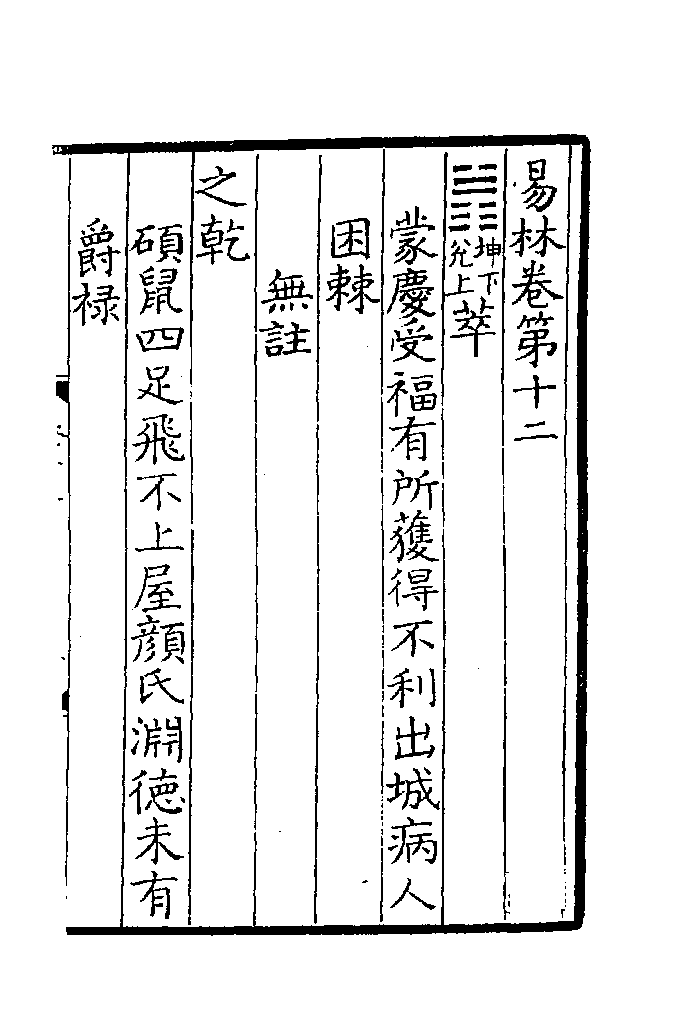 易林卷第十二
䷬坤下兊上萃
蒙慶受福有所獲得不利出城病人
困棘
無註
之乾
碩鼠四足飛不上屋顔氏淵徳未有
爵禄